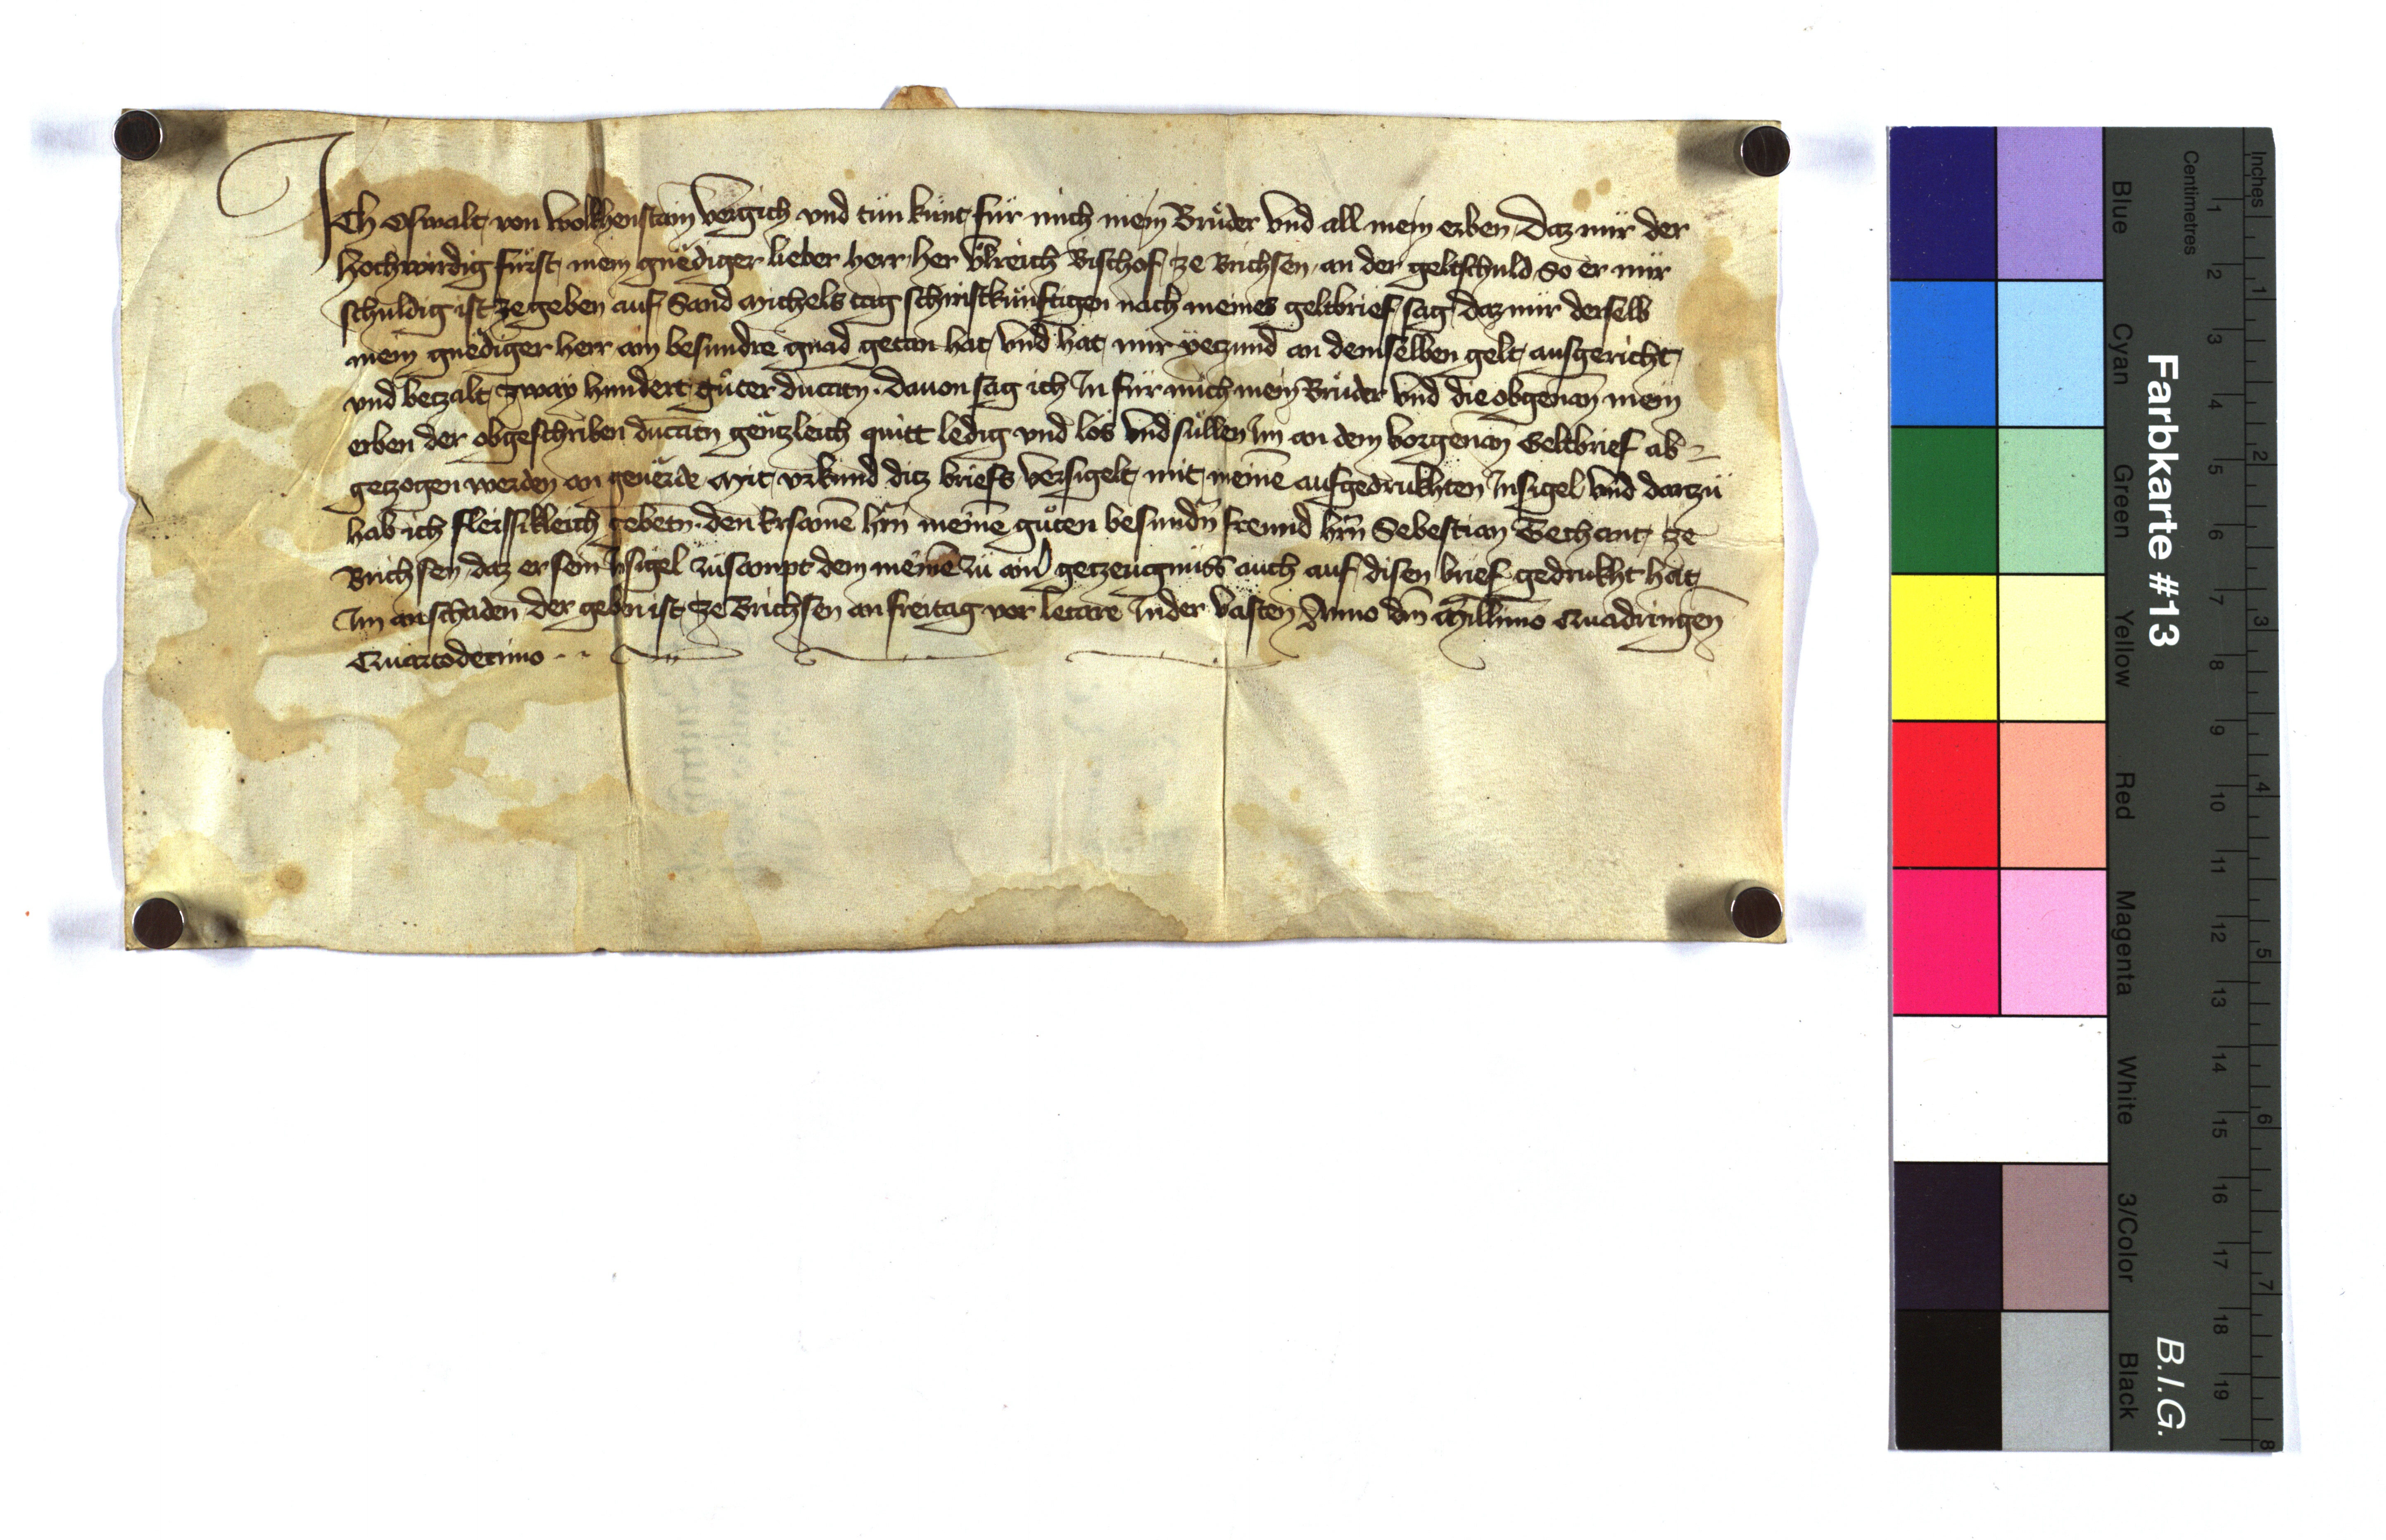 Ich Oswalt von Wolkhenstain vergich vnd tün künt für mich mein Brüder vnd all mein erben Daz mir der
hochwirdig fürst mein gnediger lieber herr her Vlreich Bischof ze Brichsen an der geltschuld so er mir
schuldig ist ze geben auf Sand Michels tag schiristkünftigen nach meines geltbrief sag daz mir derselb
mein gnediger herr ain besundre gnad getan hat vnd hat mir yetzund an demselben gelt ausgericht
vnd betzalt zway hundert güter ducatn. dauon sag ich In für mich mein Brüder vnd die obgenan mein
erben der obgeschriben ducatn gentzleich quitt ledig vnd los vnd süllen Im an dem vorgenan Geltbrief ab
getzogen werden an geuerde Mit vrkund ditz briefs versigelt mit meinē aufgedrukhten Insigel vnd dartzü
hab ich fleissikleich gebetn. den Ersamē hrn meinē güten besundn freund hrn Sebestian Techant ze
Brichsen daz er sein Insigel züsampt dem meinē zü ainr getzeugnüss auch auf disen brief gedrukht hat
Im an schaden der gebn ist ze Brichsen an freitag vor letare In der vasten Anno dm Millimo Quadringen
Quartodecimo
Farbkarte #13
B.I.G.
Inches
Centimetres
1 2 3 4 5 6 7 8 9 10 11 12 13 14 15 16 17 18 19
1 2 3 4 5 6 7 8
Blue
Cyan
Green
Yellow
Red
Magenta
White
3/Color
Black